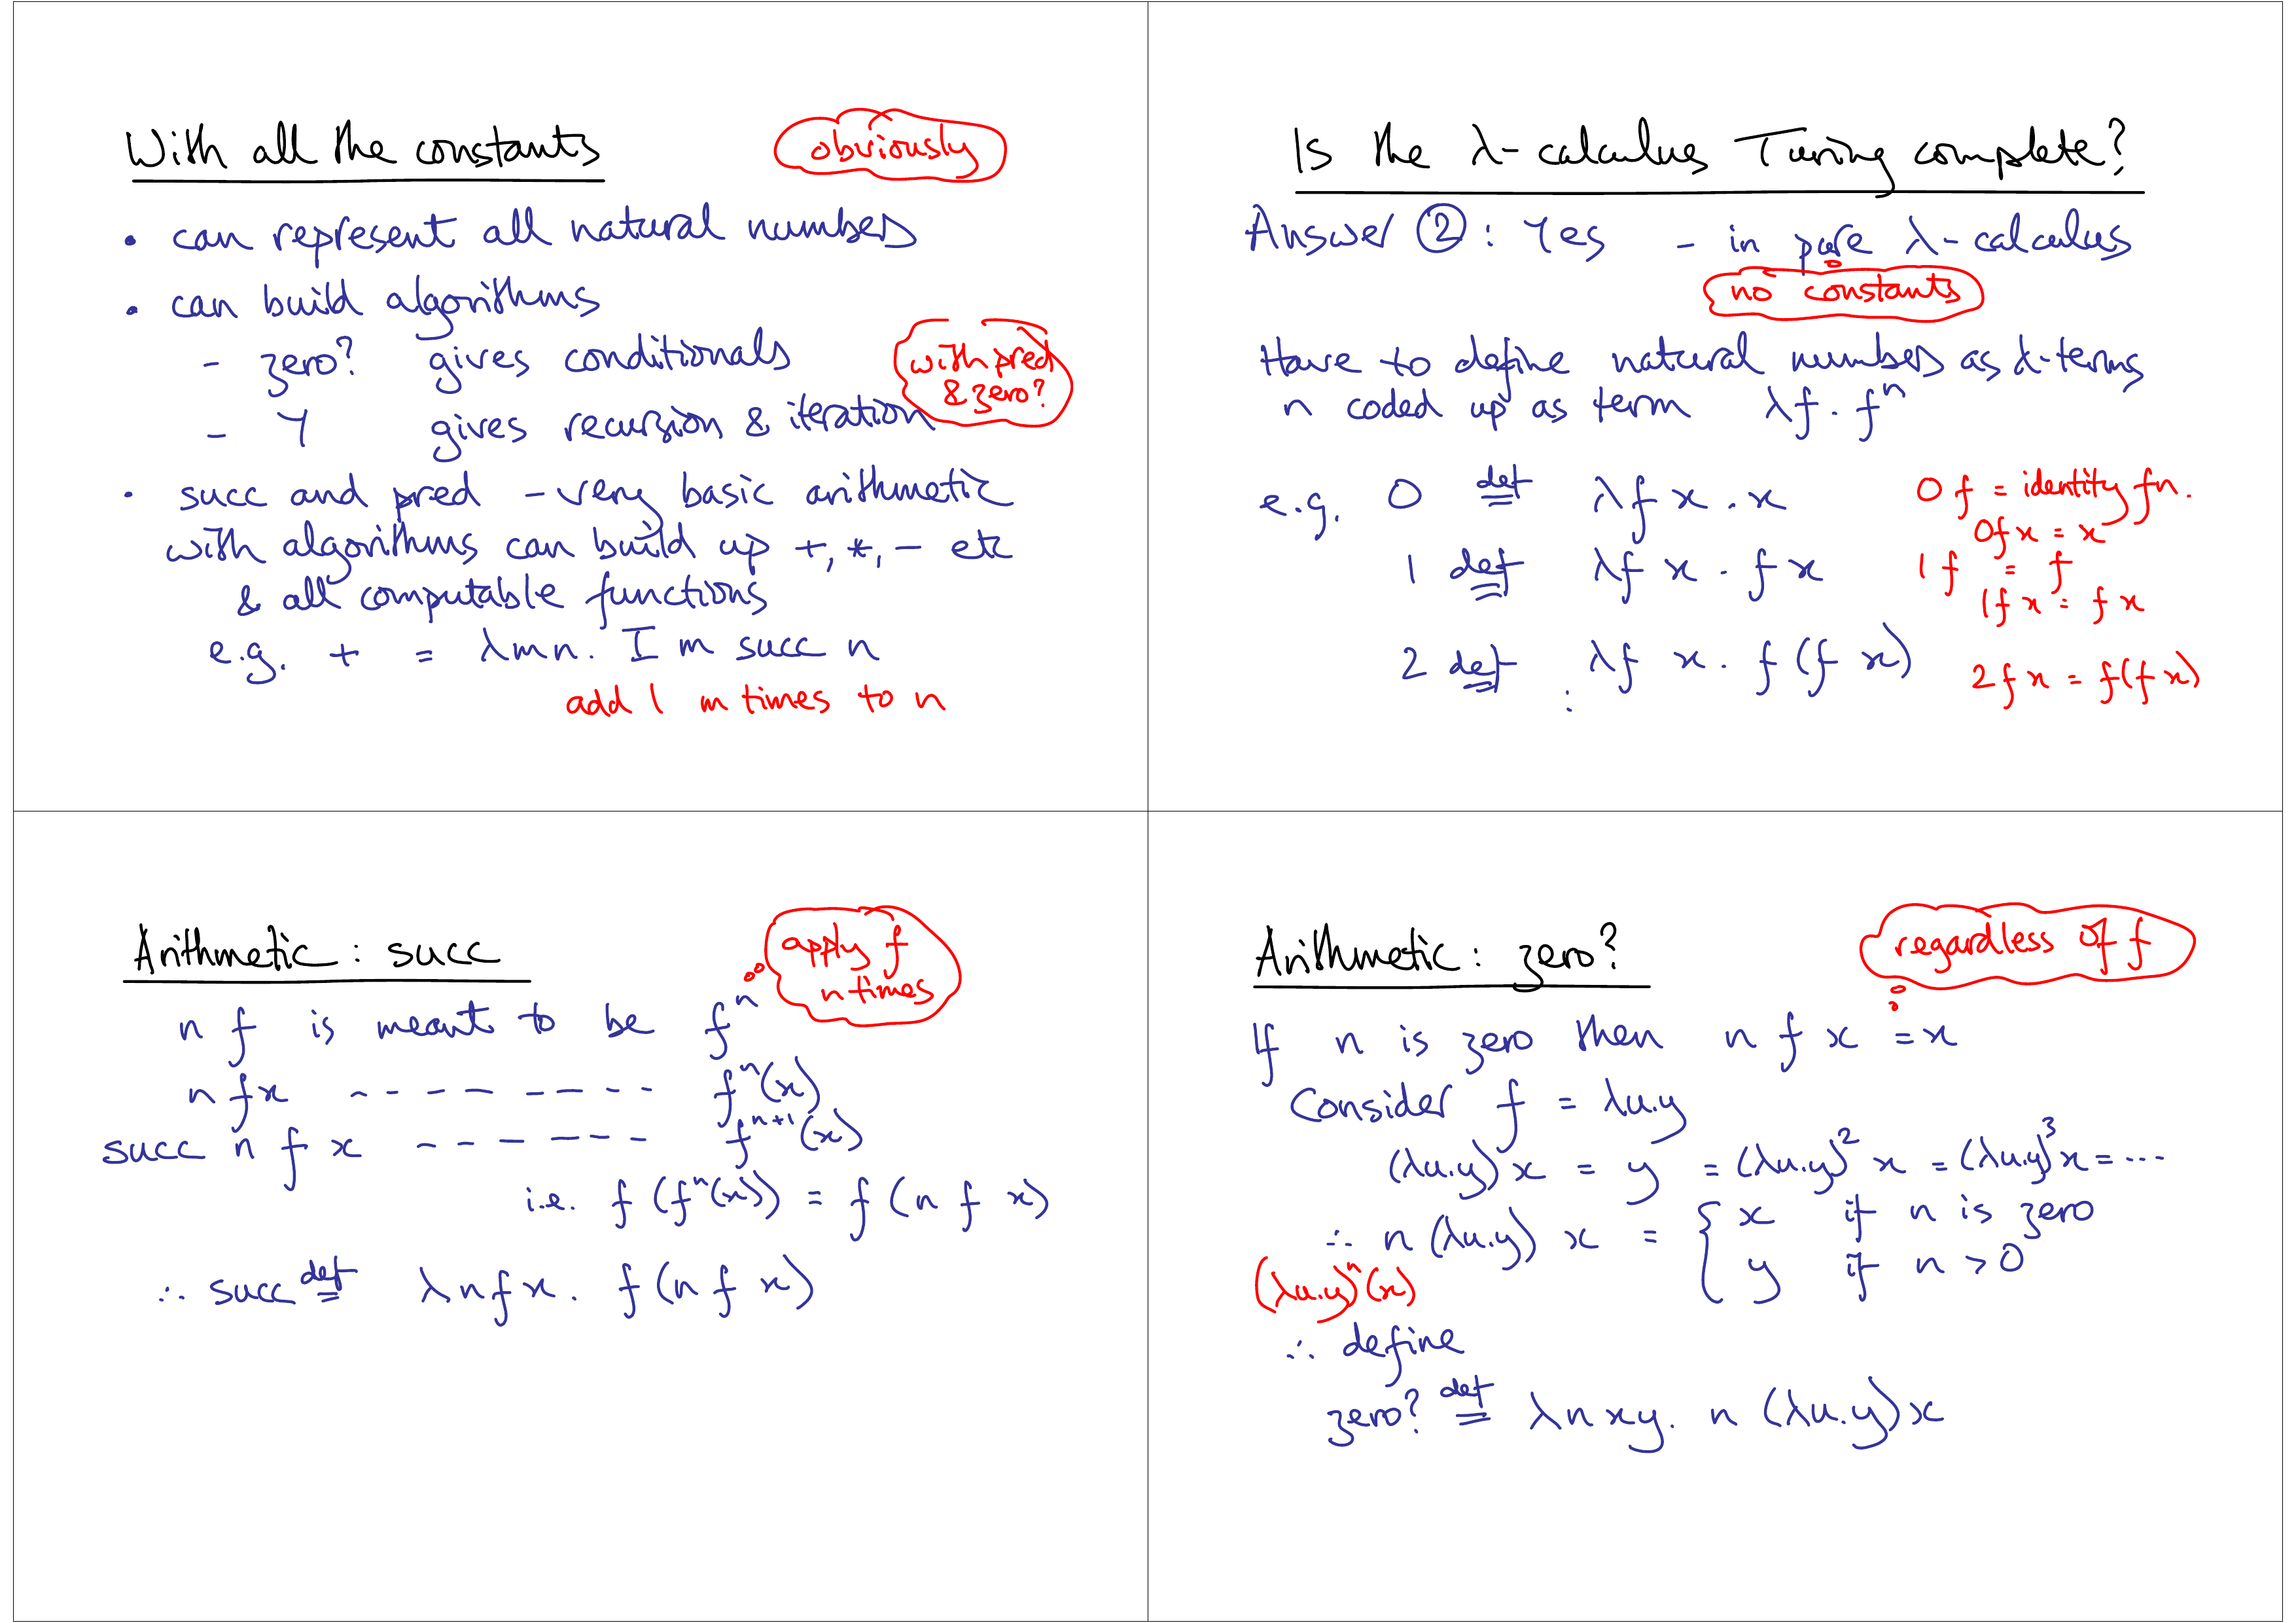 With all the constants
obviously
• can represent all natural numbers
• can build algorithms
- zero? gives conditionals
with pred
& zero?
- Y gives recursion & iteration
• succ and pred - very basic arithmetic
with algorithms can build up +, *, - etc
& all computable functions
e.g. + = λmn. I m succ n
add 1 m times to n
Is the λ-calculus Turing complete?
Answer ②: Yes - in pure λ-calculus
no constants
Have to define natural numbers as λ-terms
n coded up as term λf. fⁿ
e.g. 0 def= λf x . x
0 f = identity fn.
0f x = x
1 def= λf x . f x
1 f = f
1f x = f x
2 def= λf x. f (f x)
2 f x = f(f x)
⋮
Arithmetic : succ
apply f
n times
n f is meant to be fⁿ
n f x - - - - - - - - - fⁿ(x)
succ n f x - - - - - - - - - fⁿ⁺¹(x)
i.e. f (fⁿ(x)) = f (n f x)
∴ succ def= λn f x. f (n f x)
Arithmetic : zero?
regardless of f
If n is zero then n f x = x
Consider f = λu.y
(λu.y) x = y = (λu.y)² x = (λu.y)³ x = ...
∴ n (λu.y) x = { x if n is zero
y if n > 0
(λu.y)ⁿ(x)
∴ define
zero? def= λn x y. n (λu.y) x